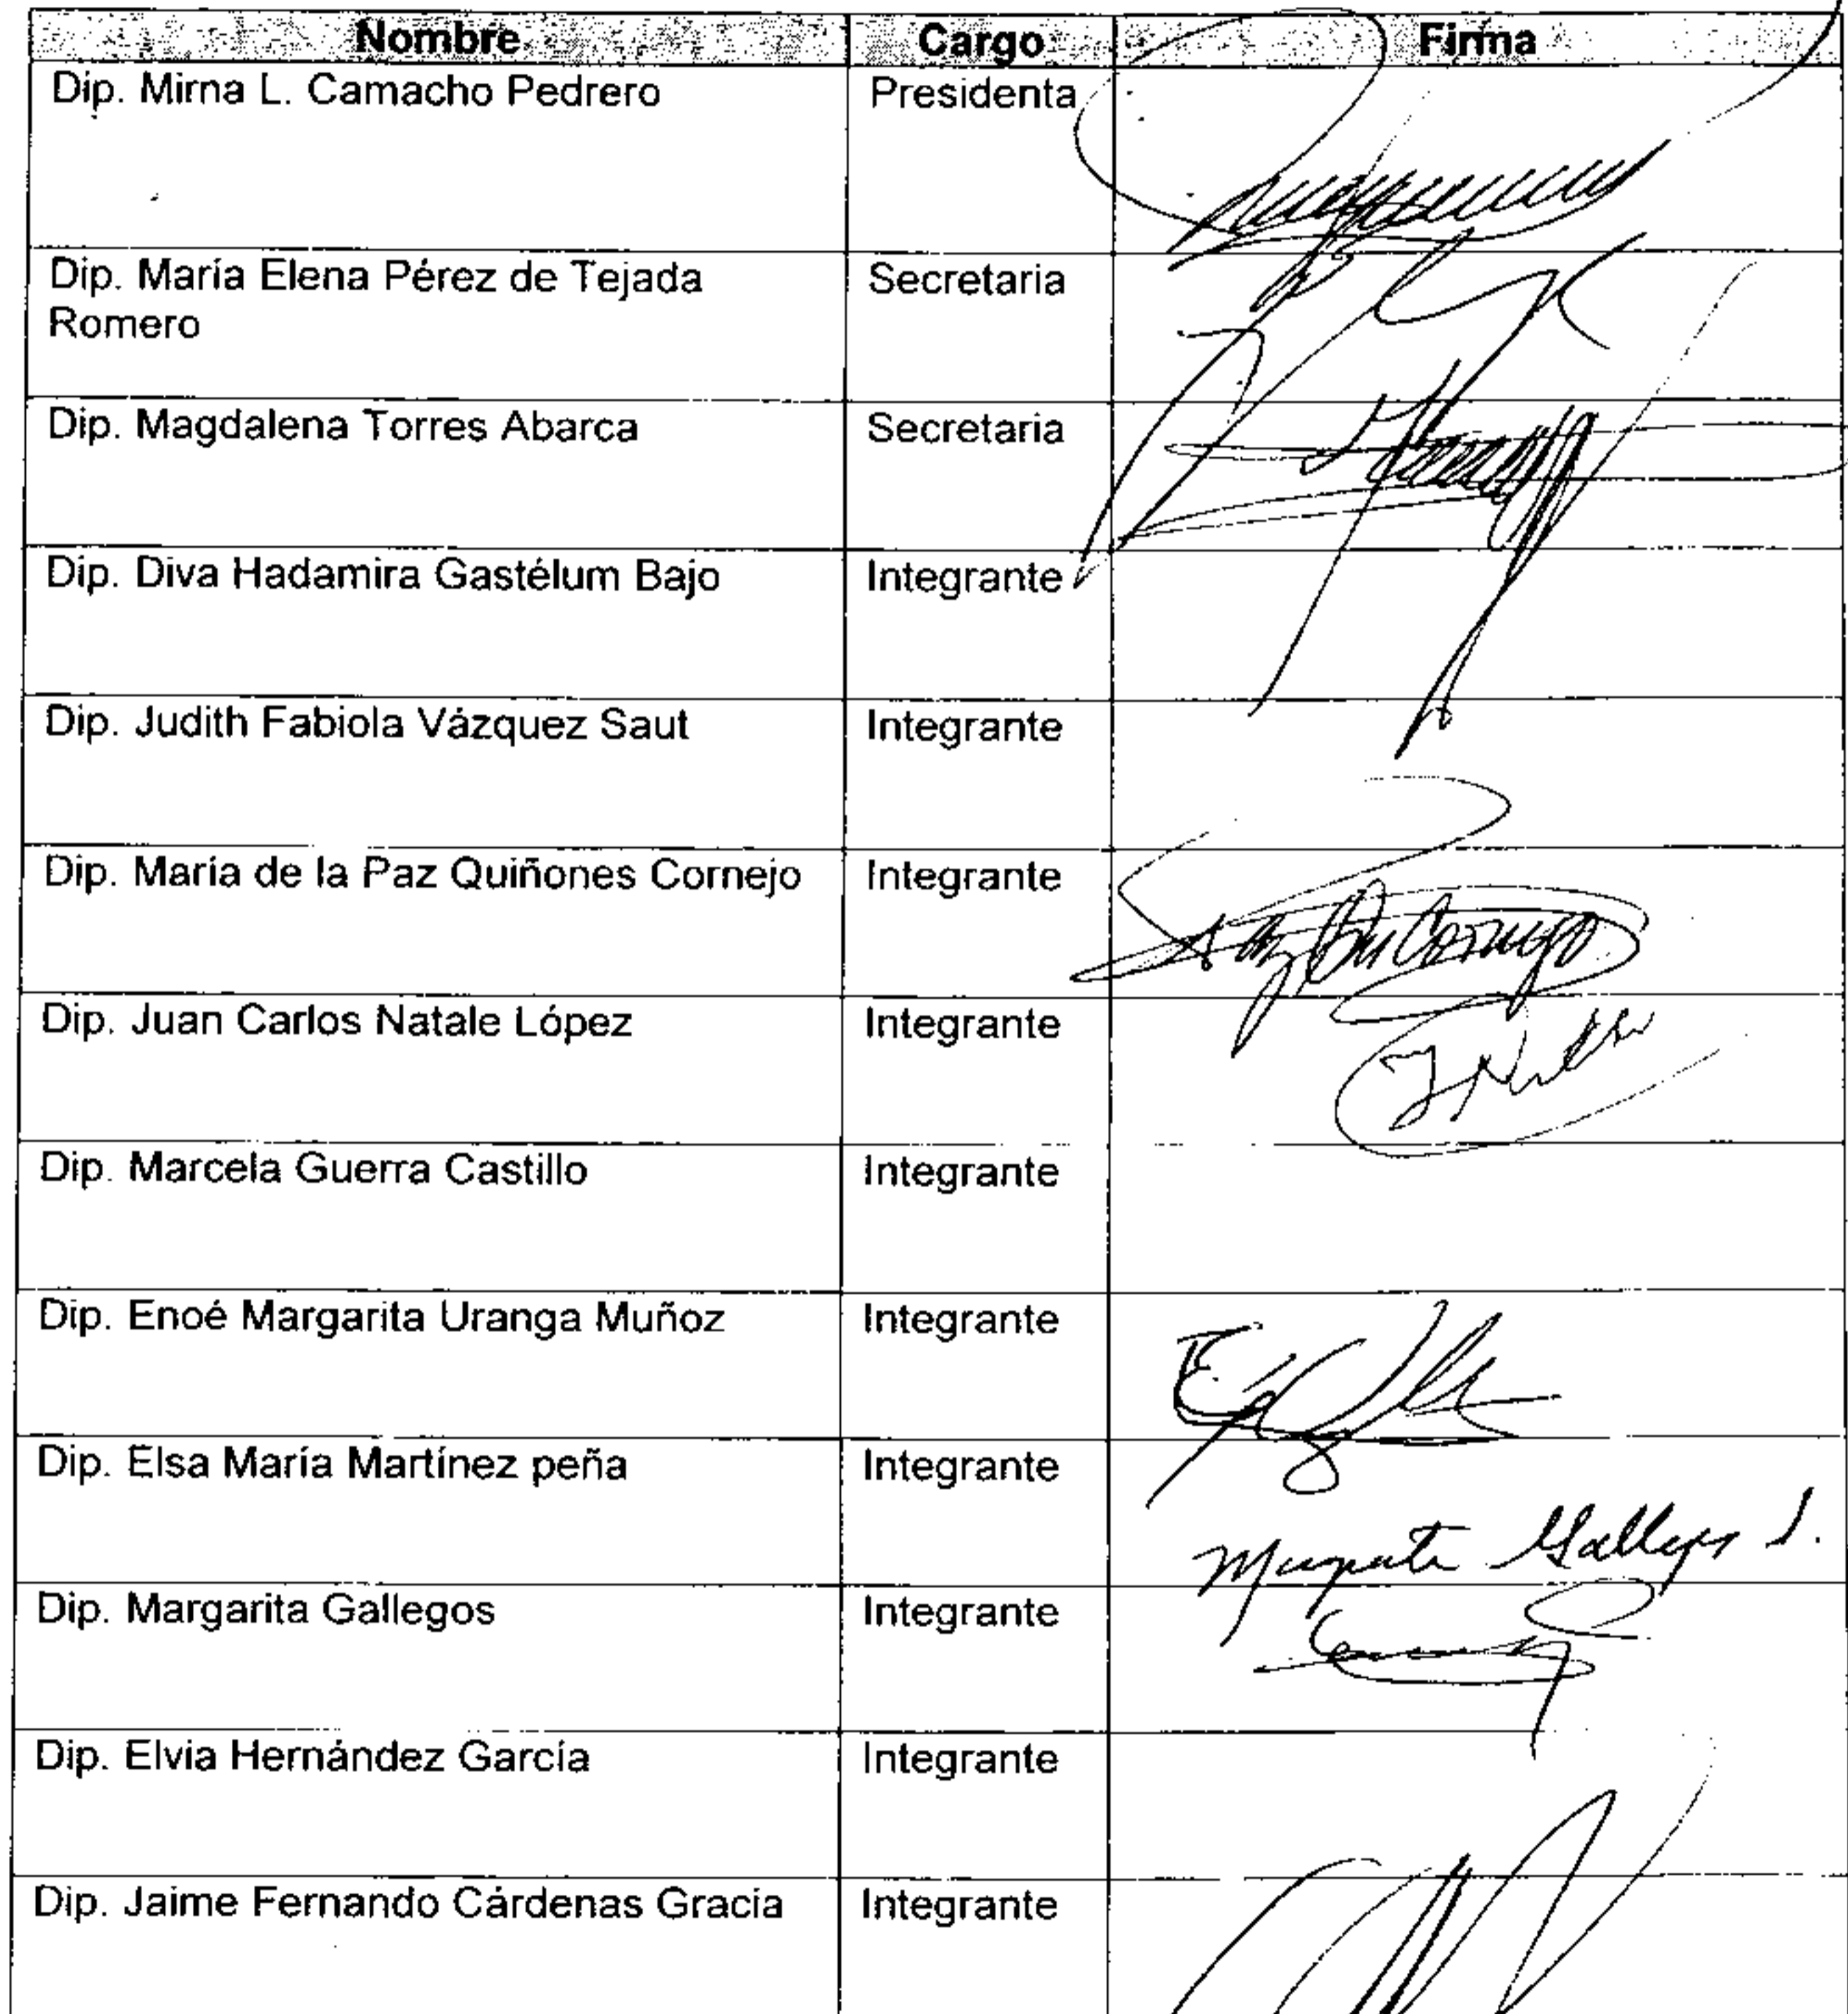 Nombre Cargo Firma
Dip. Mirna L. Camacho Pedrero Presidenta
Dip. María Elena Pérez de Tejada Secretaria
Romero
Dip. Magdalena Torres Abarca Secretaria
Dip. Diva Hadamira Gastélum Bajo Integrante
Dip. Judith Fabiola Vázquez Saut Integrante
Dip. María de la Paz Quiñones Cornejo Integrante
Dip. Juan Carlos Natale López Integrante
Dip. Marcela Guerra Castillo Integrante
Dip. Enoé Margarita Uranga Muñoz Integrante
Dip. Elsa María Martínez peña Integrante
Margarita Gallegos S.
Dip. Margarita Gallegos Integrante
Dip. Elvia Hernández García Integrante
Dip. Jaime Fernando Cárdenas Gracia Integrante